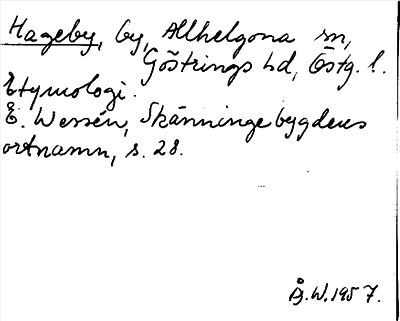 Hageby, by, Allhelgona sn,
Göstrings hd, Östg. l.
Etymologi.
E. Wessén, Skänningebygdens
ortnamn, s. 28.
Å.W. 1957.